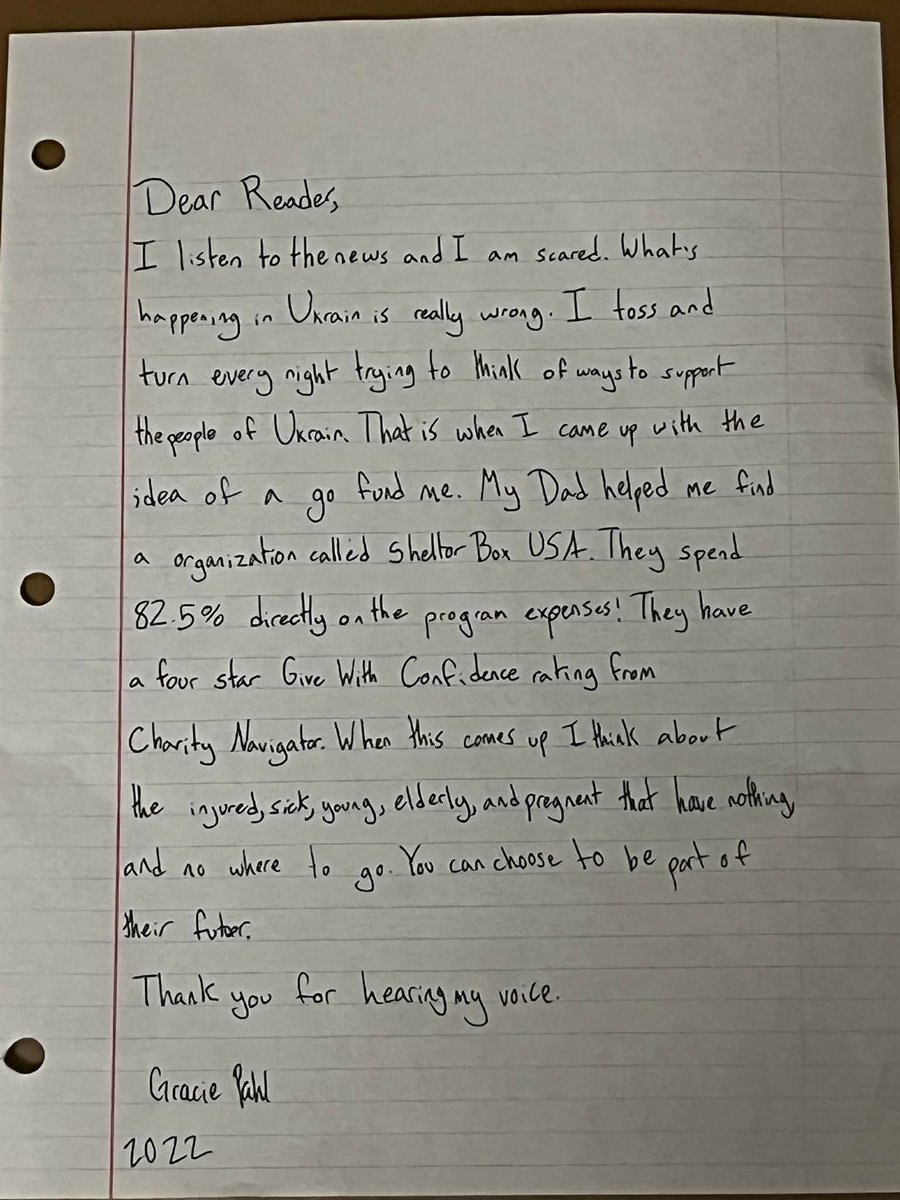 Dear Reader,
I listen to the news and I am scared. What's
happening in Ukrain is really wrong. I toss and
turn every night trying to think of ways to support
the people of Ukrain. That is when I came up with the
idea of a go fund me. My Dad helped me find
a organization called Sheltor Box USA. They spend
82.5% directly on the program expenses! They have
a four star Give With Confidence rating from
Charity Navigator. When this comes up I think about
the injured, sick, young, elderly, and pregnent that have nothing
and no where to go. You can choose to be part of
their futuer.
Thank you for hearing my voice.
Gracie Pahl
2022